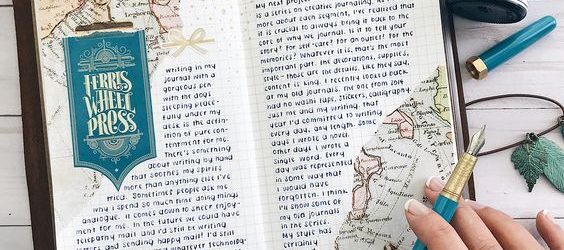 FERRIS
WHEEL
PRESS
writing in my
journal with a
gorgeous pen
with the dog
sleeping peace-
fully under my
desk is the defin-
ition of pure con-
tentment for me.
There's something
about writing by hand
that soothes my spirits
more than anything else I've
tried. Sometimes people ask me
why I spend so much time doing things
analogue. It comes down to sheer enjoy-
ment for me. In the future we could have
telepathy mail and I'd still be writing
letters and sending happy mail! I'd still
and whatever
my next project
is a series on creative journaling. As I
more about each segment, I've realized that
it is crucial to always bring it back to the
core of why we journal. Is it to tell your
story? For self-care? For an outlet? For the
memories? Whatever it is, that's the most
important part. The decorations, supplies,
style - those are the details. Like they said,
content is king. I recently looked back
at my old journals. The one from 2014
had no washi tape, stickers, calligraphy.
Just me and my writing. That
year I'd committed to writing
every day, any length. Some
days I wrote a novel.
Other days I wrote a
single word. Every
day was represented
in some way that
I would have
forgotten. I think
I'll show some of
my old journals
in the series.
My style has
certainly